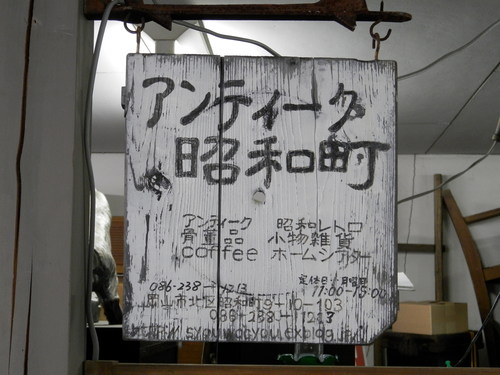 アンティーク
昭和町
アンティーク 昭和レトロ
骨董品 小物雑貨
coffee ホームシアター
定休日 月曜日
11:00-15:00
086-238-
岡山市北区昭和町9-10-103
086-238-